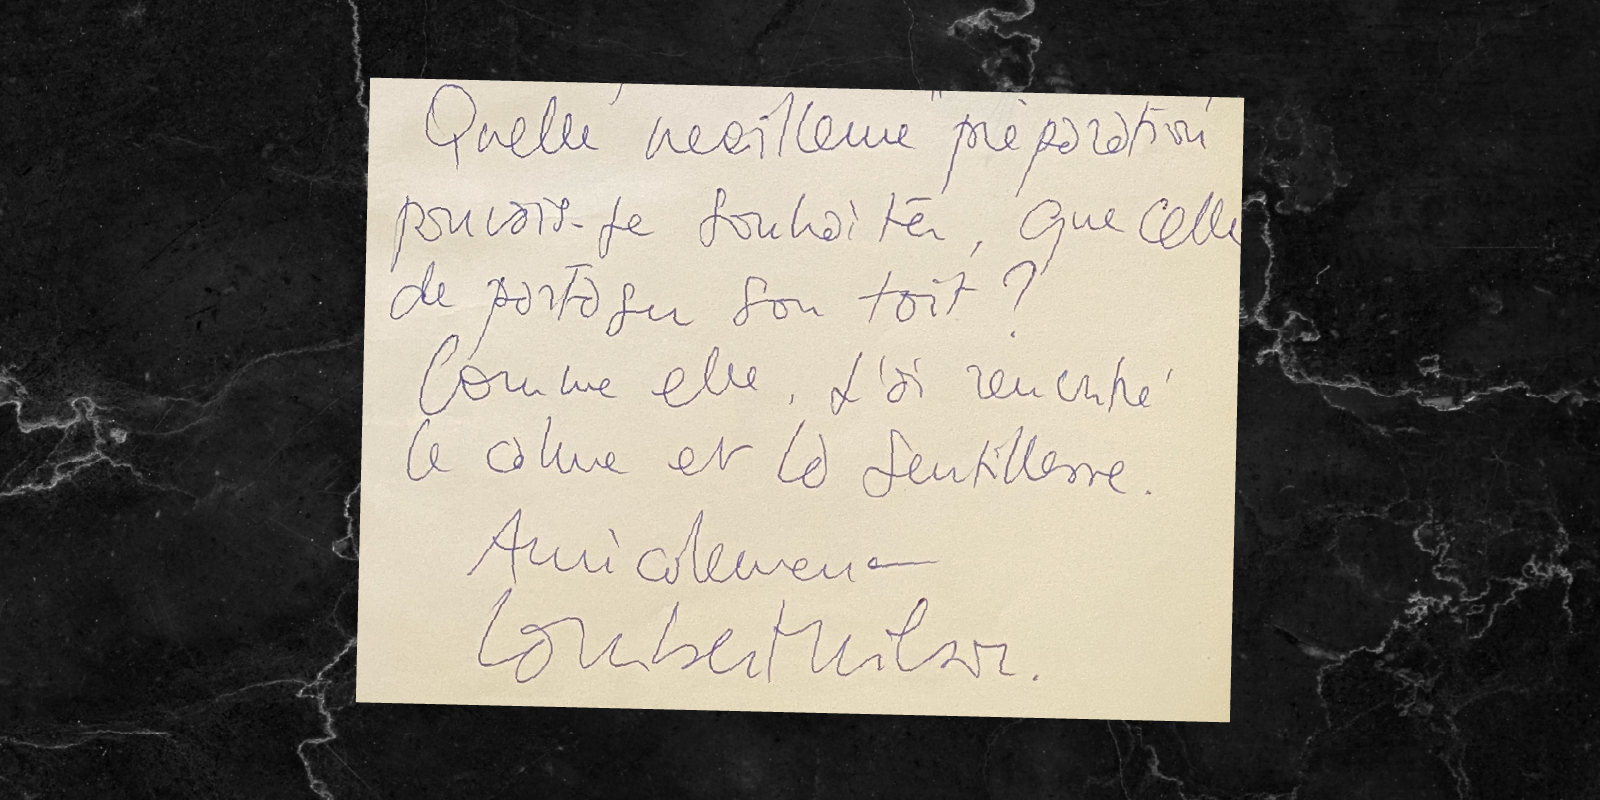 Quelle meilleure "préparation
pouvais-je souhaiter, que celle
de partager son toit ?
Comme elle, j'ai rencontré
le calme et la gentillesse.
Amicalement
Lambert Wilson.